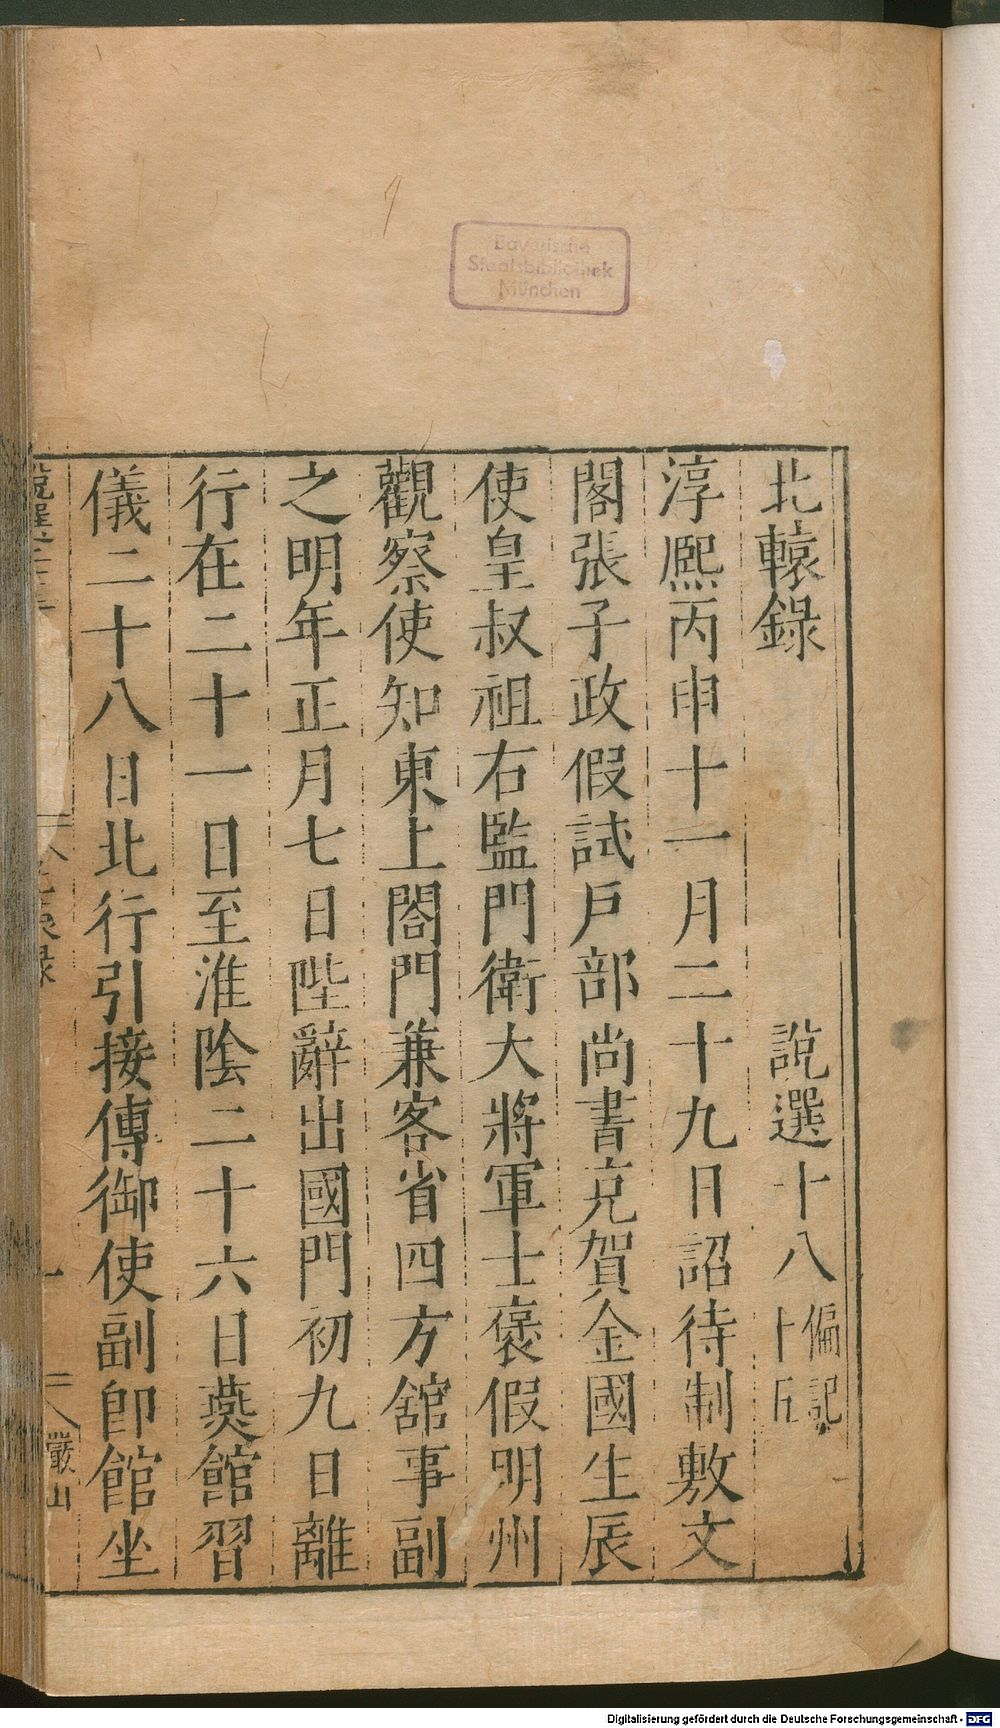 北轅錄 說選十八 偏記
十五
淳熈丙申十一月二十九日詔待制敷文
閣張子政假試戶部尚書充賀金國生辰
使皇叔祖右監門衛大將軍士褒假明州
觀察使知東上閤門兼客省四方舘事副
之明年正月七日陛辭出國門初九日離
行在二十一日至淮陰二十六日燕館習
儀二十八日北行引接傳御使副卽館坐
說選
錄
一
嚴山
Bayerische
Staatsbibliothek
München
Digitalisierung gefördert durch die Deutsche Forschungsgemeinschaft - DFG